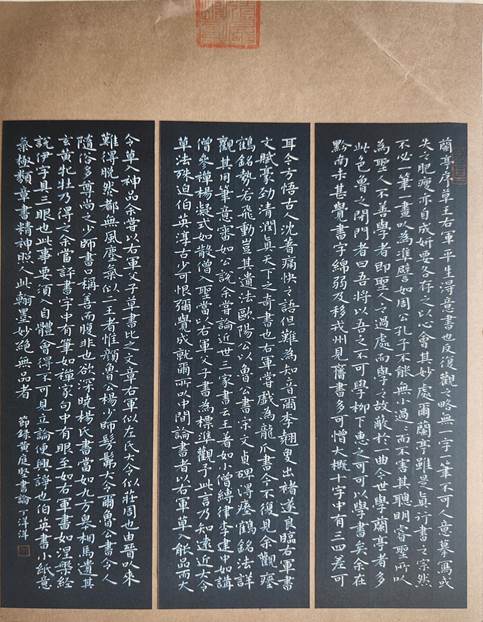 蘭亭序草王右軍平生得意書也反復觀之略無一字一筆不可人意摹寫或
失之肥瘦亦自成妍要各存之以心會其妙處爾蘭亭雖是真行書之宗然
不必一筆一畫以為準譬如周公孔子不能無小過過而不害其聰明睿聖所以
為聖人不善學者即聖人之過處而學之故蔽於一曲今世學蘭亭者多
此也魯之閉門者曰吾將以吾之不可學柳下惠之可可以學書矣余在
黔南未甚覺書字綿弱及移戎州見舊書多可憎大概十字中有三四差可
耳今方悟古人沈著痛快之語但難為知音爾李翹叟出褚遂良臨右軍書
文賦豪勁清潤真天下之奇書也右軍嘗戲為龍爪書今不復見余觀瘞
鶴銘勢若飛動豈其遺法歐陽以魯公書宋文貞碑得瘞鶴銘法詳
觀其用筆意審如公說余嘗論近世三家書云王著如小僧縛律李建如講
僧參禪楊凝式如散僧入聖當以右軍父子書為標準觀予此言乃知遠近大令
草法殊迫伯英淳古少可恨彌覺成就爾所以中間論書者以右軍草入能品而大
令草入神品余嘗以右軍父子草書比之文章右軍似左氏大令似莊周也由晉以來
難得脫然都無風塵氣似二王者惟顏魯公楊少師髣髴大令爾魯公書今人
隨俗多尊尚之少師書口稱善而腹非也欲深曉楊氏書當如九方皋相馬遺其
玄黃牝牡乃得之余嘗評書字中有筆如禪家句中有眼至如右軍書如涅槃經
說伊字具三眼也此事要須人自體會得不可見立論便興諍也伯英書小紙意
氣極類章書精神照人此翰墨妙絕無品者 節錄黃庭堅書論